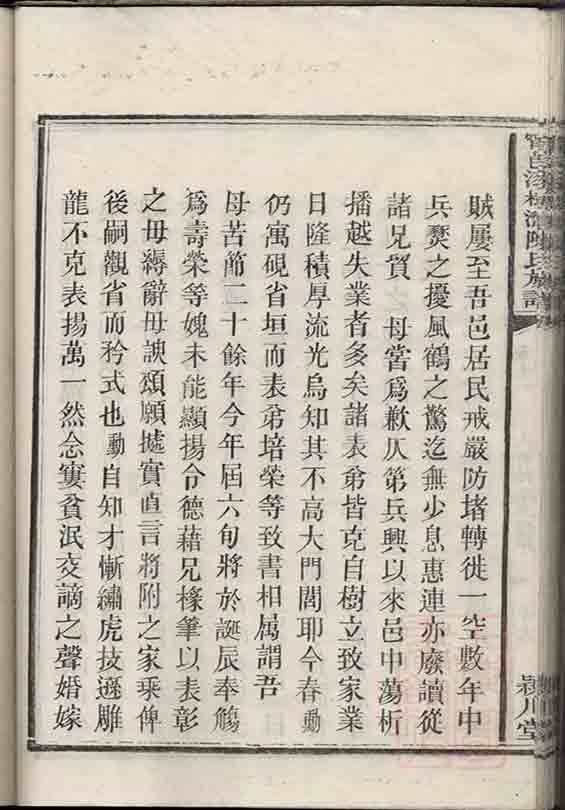 賊屢至吾邑居民戒嚴防堵轉徙一空數年中
兵燹之擾風鶴之驚迄無少息惠連亦廢讀從
諸兄貿之母嘗為歉仄第兵興以來邑中蕩析
播越失業者多矣諸表弟皆克自樹立致家業
日隆積厚流光烏知其不高大門閭耶今春動
仍寓硯省垣而表弟培榮等致書相屬謂吾
母苦節二十餘年今年屆六旬將於誕辰奉觴
爲壽榮等媿未能顯揚令德藉兄椽筆以表彰
之毋縟辭毋諛頌願摭實直言將附之家乘俾
後嗣觀省而矜式也動自知才慚繡虎技遜雕
龍不克表揚萬一然念寠貧泯交謫之聲婚嫁
陳氏族譜
潁川堂